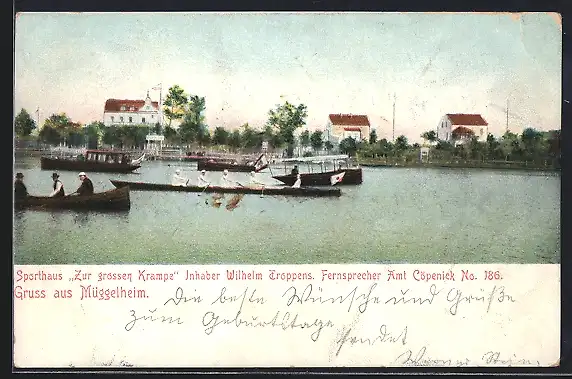 Sporthaus „Zur grossen Krampe“ Inhaber Wilhelm Troppens. Fernsprecher Amt Cöpenick No. 186.
Gruss aus Müggelheim.
Die besten Wünsche und Grüße
zum Geburtstage
sendet